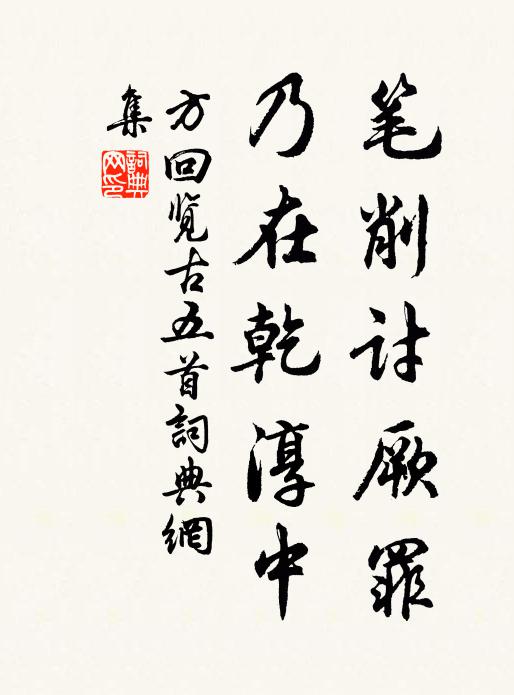 笔削討厥罪
乃在乾淳中
方回览古五首詞典網
集
詞典
网印